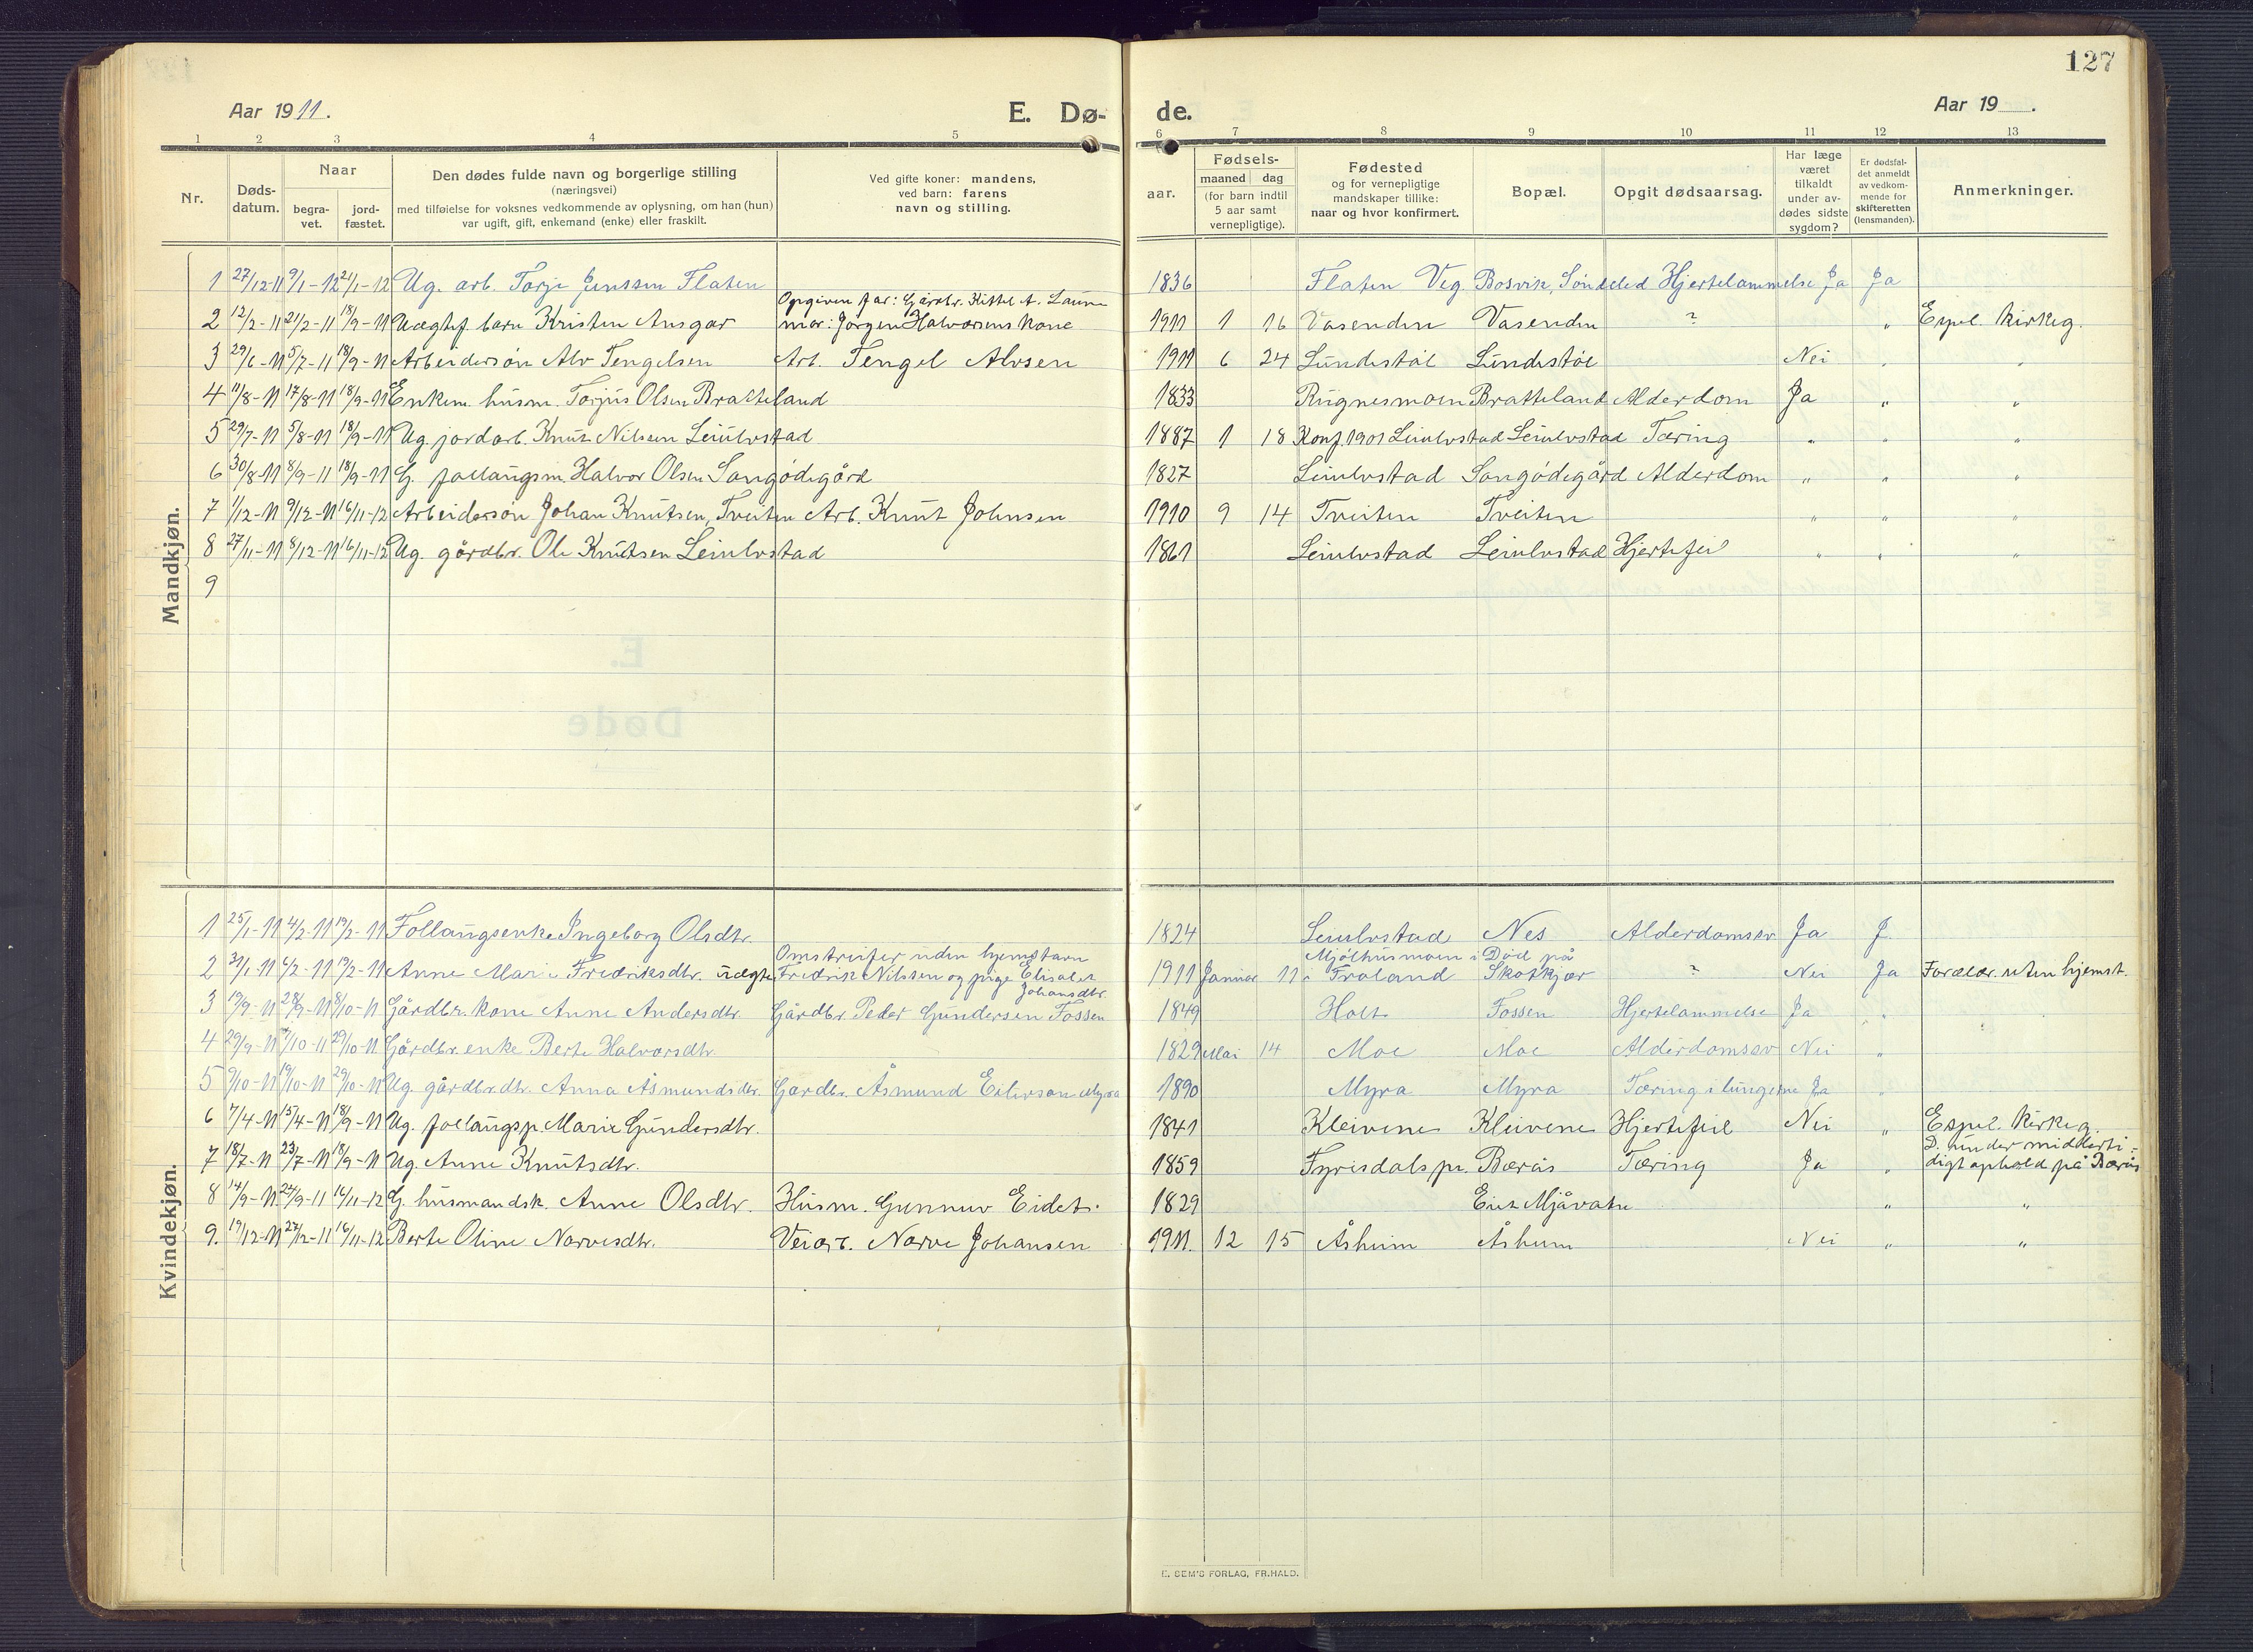 127
Aar 1911.
E. Dø-
de.
Aar 19   .
1 2 3 4 5 6 7 8 9 10 11 12 13
Nr.
Døds-
datum.
Naar
begra-
vet.
jord-
fæstet.
Den dødes fulde navn og borgerlige stilling
(næringsvei)
med tilføielse for voksnes vedkommende av oplysning, om han (hun)
var ugift, gift, enkemand (enke) eller fraskilt.
Ved gifte koner: mandens,
ved barn: farens
navn og stilling.
aar.
Fødsels-
maaned dag
(for barn indtil
5 aar samt
vernepligtige).
Fødested
og for vernepligtige
mandskaper tillike:
naar og hvor konfirmert.
Bopæl.
Opgit dødsaarsag.
Har læge
været
tilkaldt
under av-
dødes sidste
sygdom?
Er dødsfal-
det anmeldt
av vedkom-
mende for
skifteretten
(lensmanden).
Anmerkninger.
Mandkjøn.
1 27/12-11 9/1-12 21/1-12 Ug. arb. Torje Jenssen Flaten 1836 Flaten Veg. Bosvik, Søndeled Hjertelammelse Ja Ja
Opgiven far: Gårdbr. Kittel A.
2 12/2-11 21/2-11 18/9-11 Uægtef. barn Kristen Ansgar mor: Jørgen Halvorsens kone 1911 1 16 Vasenden Vasenden ? " Espel. kirkeg.
3 29/6-11 5/7-11 18/9-11 Arbeidersøn Alv Tengelsen Arb. Tengel Alvsen 1911 6 24 Lundestøl Lundestøl Nei " "
4 11/8-11 17/8-11 18/9-11 Enkem. husm. Torjus Olsen Bratteland 1833 Rugnesmoen Bratteland Alderdom Ja " "
5 29/7-11 5/8-11 18/9-11 Ug. jordarb. Knut Nilsen Leiulvstad 1887 1 18 Konf. 1901 Leiulvstad Leiulvstad Tæring " " "
6 30/8-11 8/9-11 18/9-11 G. follaugsm. Halvor Olsen Songødegård 1827 Leiulvstad Songødegård Alderdom " " "
7 1/12-11 9/12-11 16/11-12 Arbeidersøn Johan Knutsen, Tveiten Arb. Knut Johnsen 1910 9 14 Tveiten Tveiten " " "
8 27/11-11 8/12-11 16/11-12 Ug. gårdbr. Ole Knutsen Leiulvstad 1861 Leiulvstad Leiulvstad Hjertefeil " " "
9
Kvindekjøn.
1 25/1-11 4/2-11 19/2-11 Follaugsenke Ingeborg Olsdtr. 1824 Leiulvstad Nes Alderdomssv Ja J.
Omstreifer uden hjemstavn Mjølhusmoen i Død på
2 31/1-11 6/2-11 19/2-11 Anne Marie Fredriksdtr. uægte Fredrik Nilssen og pige Elisabet 1911 Januar 11 Froland Skotkjær ? Nei Ja Forældr. uten hjemst.
Johansdtr.
3 19/9-11 28/9-11 8/10-11 Gårdbr. kone Anne Andersdtr. Gårdbr. Peder Gundersen Fossen 1849 Holt Fossen Hjertelammelse Ja "
4 29/9-11 7/10-11 29/10-11 Gårdbr. enke Berte Halvorsdtr. 1829 Mai 14 Moe Moe Alderdomssv Nei "
5 9/10-11 19/10-11 29/10-11 Ug. gårdbr.dtr. Anna Åsmundsdtr. Gårdbr. Åsmund Eilivson Myra 1890 Myra Myra Tæring i lungerne Ja "
6 7/4-11 15/4-11 18/9-11 Ug. follaugsp. Marie Gundersdtr. 1841 Kleivene Kleivene Hjertefeil Nei " Espel. kirkeg.
D. under midlerti-
7 18/7-11 23/7-11 18/9-11 Ug. Anne Knutsdtr. 1859 Fyrisdals pr. Bærås Tæring Ja " digt ophold på Bærås
8 14/9-11 24/9-11 16/11-12 G. husmandsk. Anne Olsdtr. Husm. Gunnuv Eidet. 1829 Eiet Mjåvatn " "
9. 19/12-11 27/12-11 16/11-12 Berte Oline Narvesdtr. Veiarb. Narve Johansen 1911. 12 15 Åsheim Åsheim Nei " "
E. SEM'S FORLAG, FR.HALD.